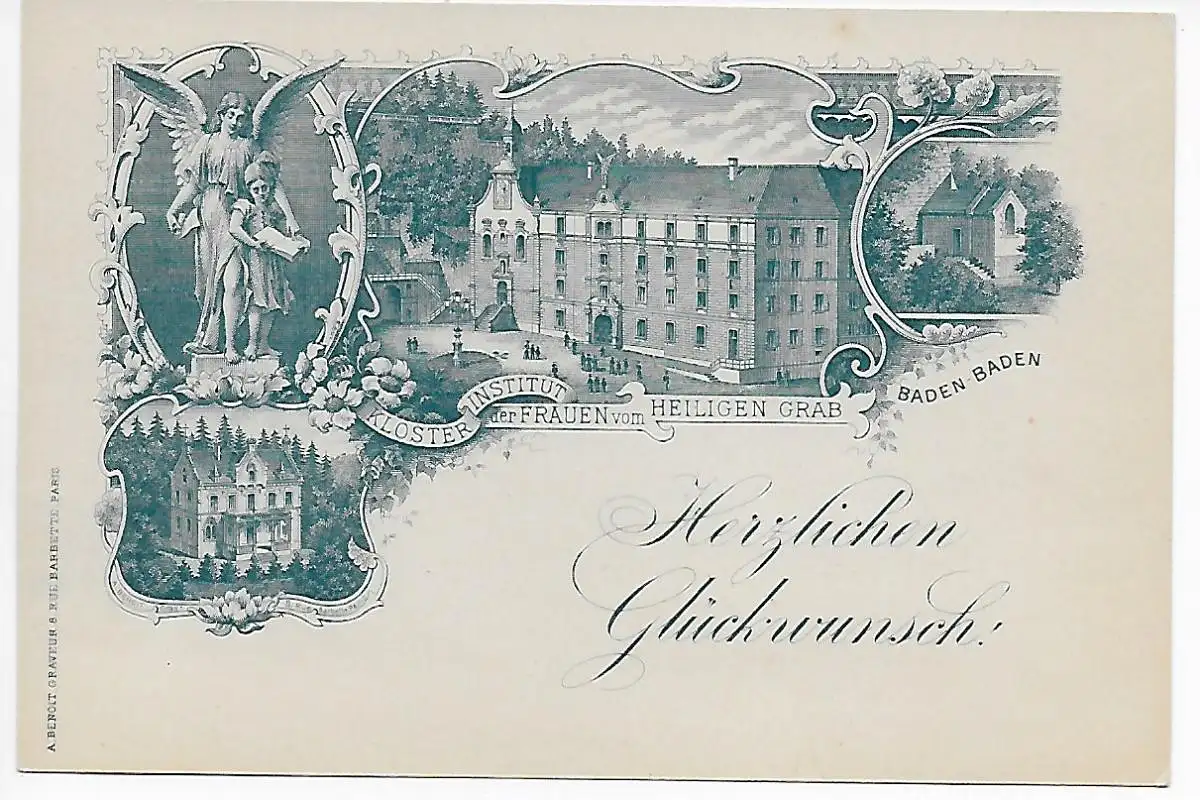 KLOSTER INSTITUT der FRAUEN vom HEILIGEN GRAB
BADEN-BADEN
Herzlichen
Glückwunsch!
A. BENOIT GRAVEUR 8 RUE BARBETTE PARIS